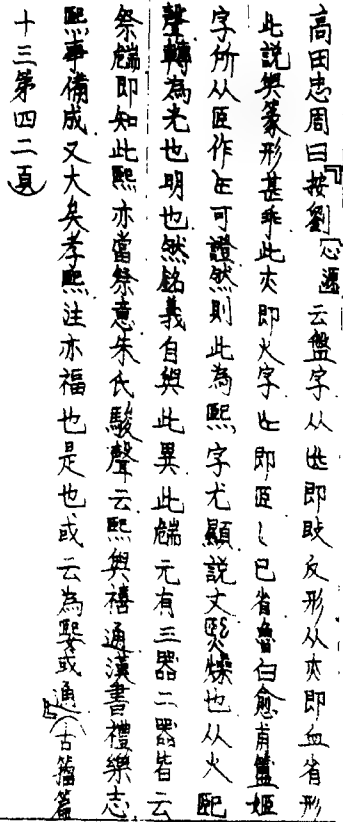 高田忠周曰「按劉心源云盤字从㐌即敃反形从亦即血省形
此說與篆形甚乖此亦即火字 即𦣞𦣞巳省魯白愈甫簠姬
字所从𦣞作 可證然則此為熙字尤顯說文熙燥也从火𦣞
聲轉為光也明也然銘義自與此異此觶元有三器二器皆云
祭觶即知此熙亦當祭意朱氏駿聲云熙與禧通漢書禮樂志
熙事備成又大矣孝熙注亦福也是也或云為娶或通」（古籀篇
十三第四二頁）